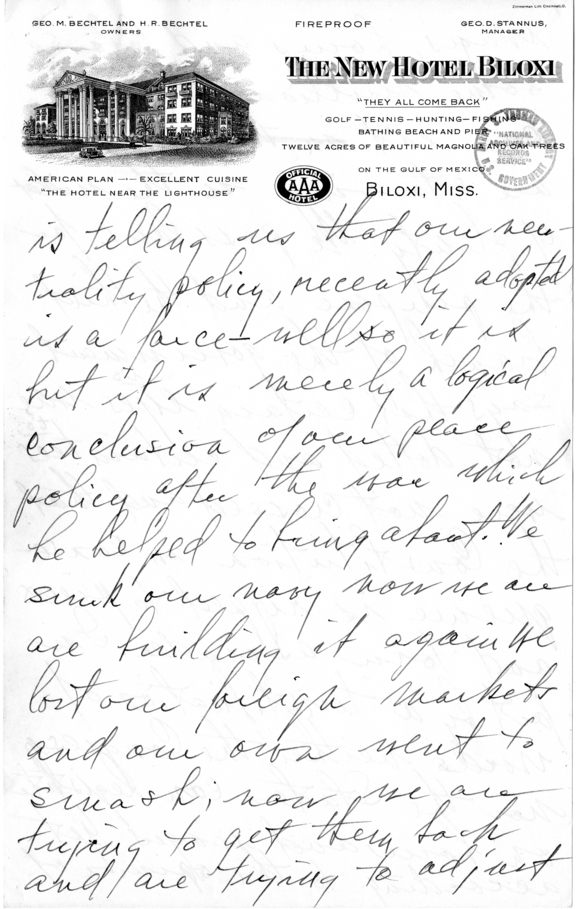 Zimmerman Lith Cincinnati,O.
GEO. M. BECHTEL AND H. R. BECHTEL
OWNERS
FIREPROOF
GEO. D. STANNUS,
MANAGER
THE NEW HOTEL BILOXI
"THEY ALL COME BACK"
GOLF – TENNIS – HUNTING – FISHING
BATHING BEACH AND PIER
TWELVE ACRES OF BEAUTIFUL MAGNOLIA AND OAK TREES
ON THE GULF OF MEXICO
BILOXI, MISS.
AMERICAN PLAN — EXCELLENT CUISINE
"THE HOTEL NEAR THE LIGHTHOUSE"
OFFICIAL
AAA
HOTEL
"NATIONAL
ARCHIVES AND
RECORDS
SERVICE"
U.S. GOVERNMENT
is telling us that our neu-
trality policy, recently adopted
is a farce – well so it is
but it is merely a logical
conclusion of our peace
policy after the war which
he helped to bring about. We
sunk our navy now we are
are building it again We
lost our foreign markets
and our own went to
smash; now we are
trying to get them back
and are trying to adjust